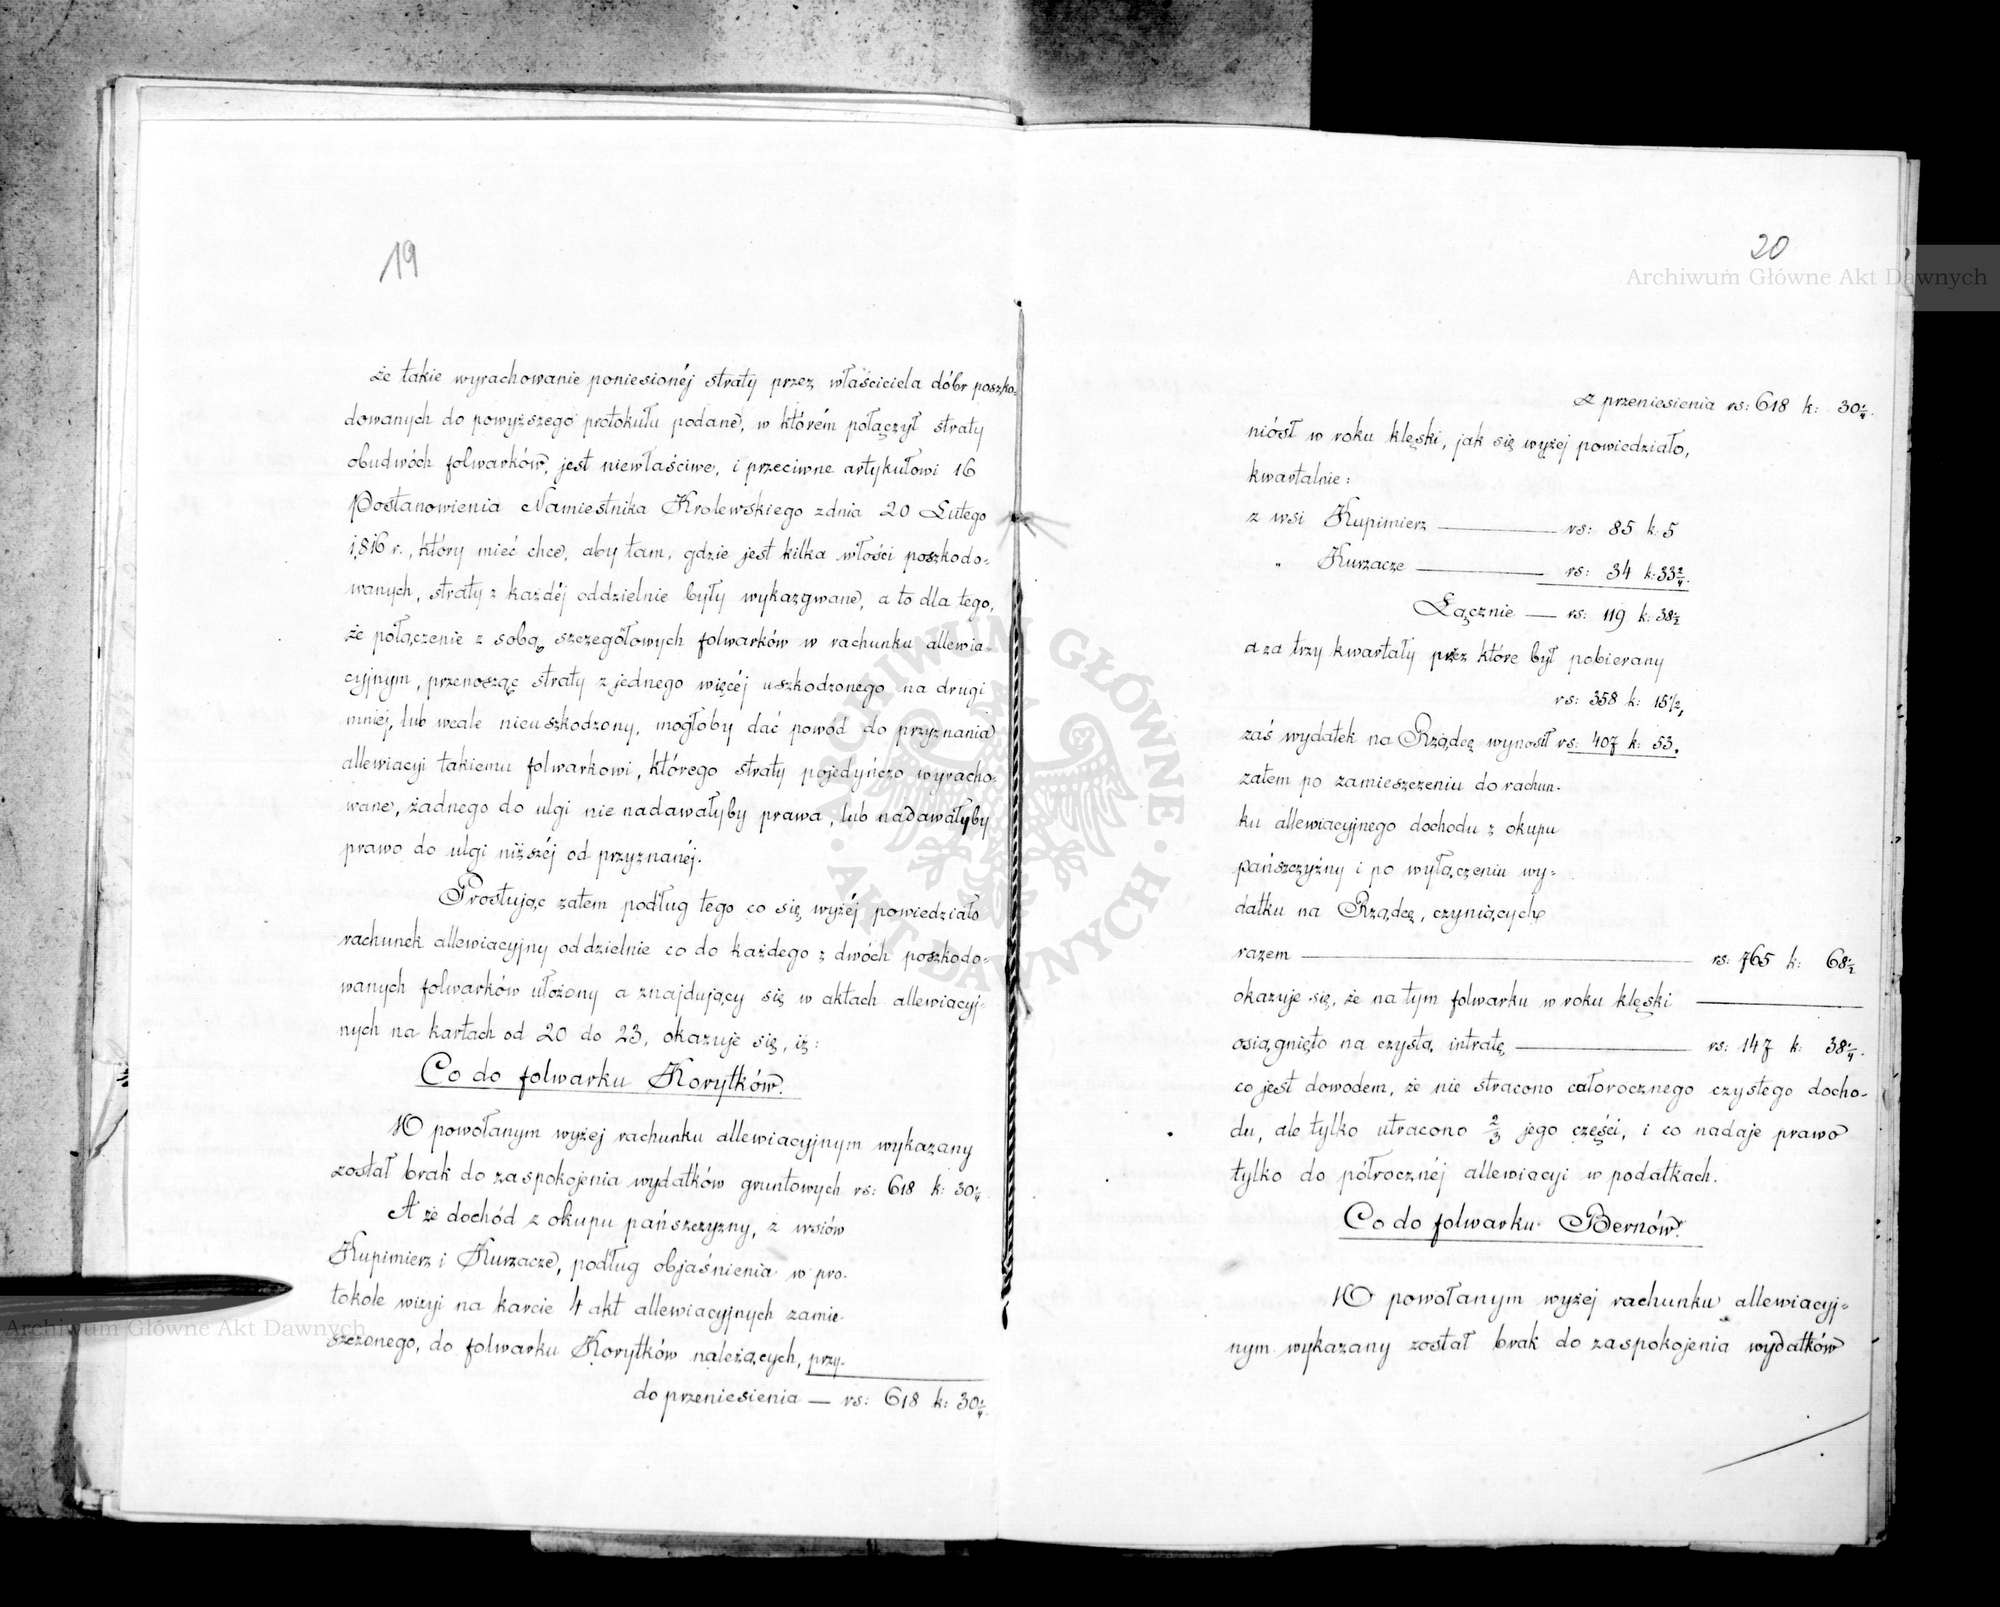 19
że takie wyrachowanie poniesionéj straty przez właściciela dóbr poszko-
dowanych do powyższego protokułu podane, w którém połączył straty
obudwóch folwarków, jest niewłaściwe, i przeciwne artykułowi 16
Postanowienia Namiestnika Krolewskiego z dnia 20 Lutego
1816 r., który mieć chce, aby tam, gdzie jest kilka włości poszkodo-
wanych, straty z każdéj oddzielnie były wykazywane, a to dla tego,
że połączenie z sobą szczegółowych folwarków w rachunku allewia-
cyjnym, przenosząc straty z jednego więcéj uszkodzonego na drugi
mniej, lub wcale nieuszkodzony, mogłoby dać powód do przyznania
allewiacyi takiemu folwarkowi, którego straty pojedyńczo wyracho-
wane, żadnego do ulgi nie nadawałyby prawa, lub nadawałyby
prawo do ulgi niższéj od przyznanéj.
Prostując zatem podług tego co się wyżéj powiedziało
rachunek allewiacyjny oddzielnie co do każdego z dwóch poszkodo-
wanych folwarków ułożony a znajdujący się w aktach allewiacyj-
nych na kartach od 20 do 23, okazuje się, iż:
Co do folwarku Korytków.
W powołanym wyżej rachunku allewiacyjnym wykazany
został brak do zaspokojenia wydatków gruntowych rs: 618 k: 30 1/4
A że dochód z okupu pańszczyzny, z wsiów
Kupimierz i Kurzacze, podług objaśnienia w pro-
tokole wizyi na karcie 4 akt allewiacyjnych zamie-
szczonego, do folwarku Korytków należących, przy-
do przeniesienia — rs: 618 k: 30 1/4.
20
Z przeniesienia rs: 618 k: 30 1/4.
niósł w roku klęski, jak się wyżej powiedziało,
kwartalnie:
z wsi Kupimierz — rs: 85 k: 5
" Kurzacze — rs: 34 k: 33 2/4.
Łącznie — rs: 119 k: 38 1/2
a za trzy kwartały przez które był pobierany
rs: 358 k: 15 1/2,
zaś wydatek na Rządcę wynosił rs: 407 k: 53.
zatem po zamieszczeniu do rachun-
ku allewiacyjnego dochodu z okupu
pańszczyzny i po wyłączeniu wy-
datku na Rządcę, czyniących
razem — rs: 765 k: 68 1/2
okazuje się, że na tym folwarku w roku klęski —
osiągnięto na czystą intratę — rs: 147 k: 38 1/4.
co jest dowodem, że nie stracono całorocznego czystego docho-
du, ale tylko utracono 2/3 jego części, i co nadaje prawo
tylko do półrocznéj allewiacyi w podatkach.
Co do folwarku Bernów.
W powołanym wyżej rachunku allewiacyj-
nym wykazany został brak do zaspokojenia wydatków
Archiwum Główne Akt Dawnych
Archiwum Główne Akt Dawnych
ARCHIWUM GŁÓWNE · AKT DAWNYCH ·